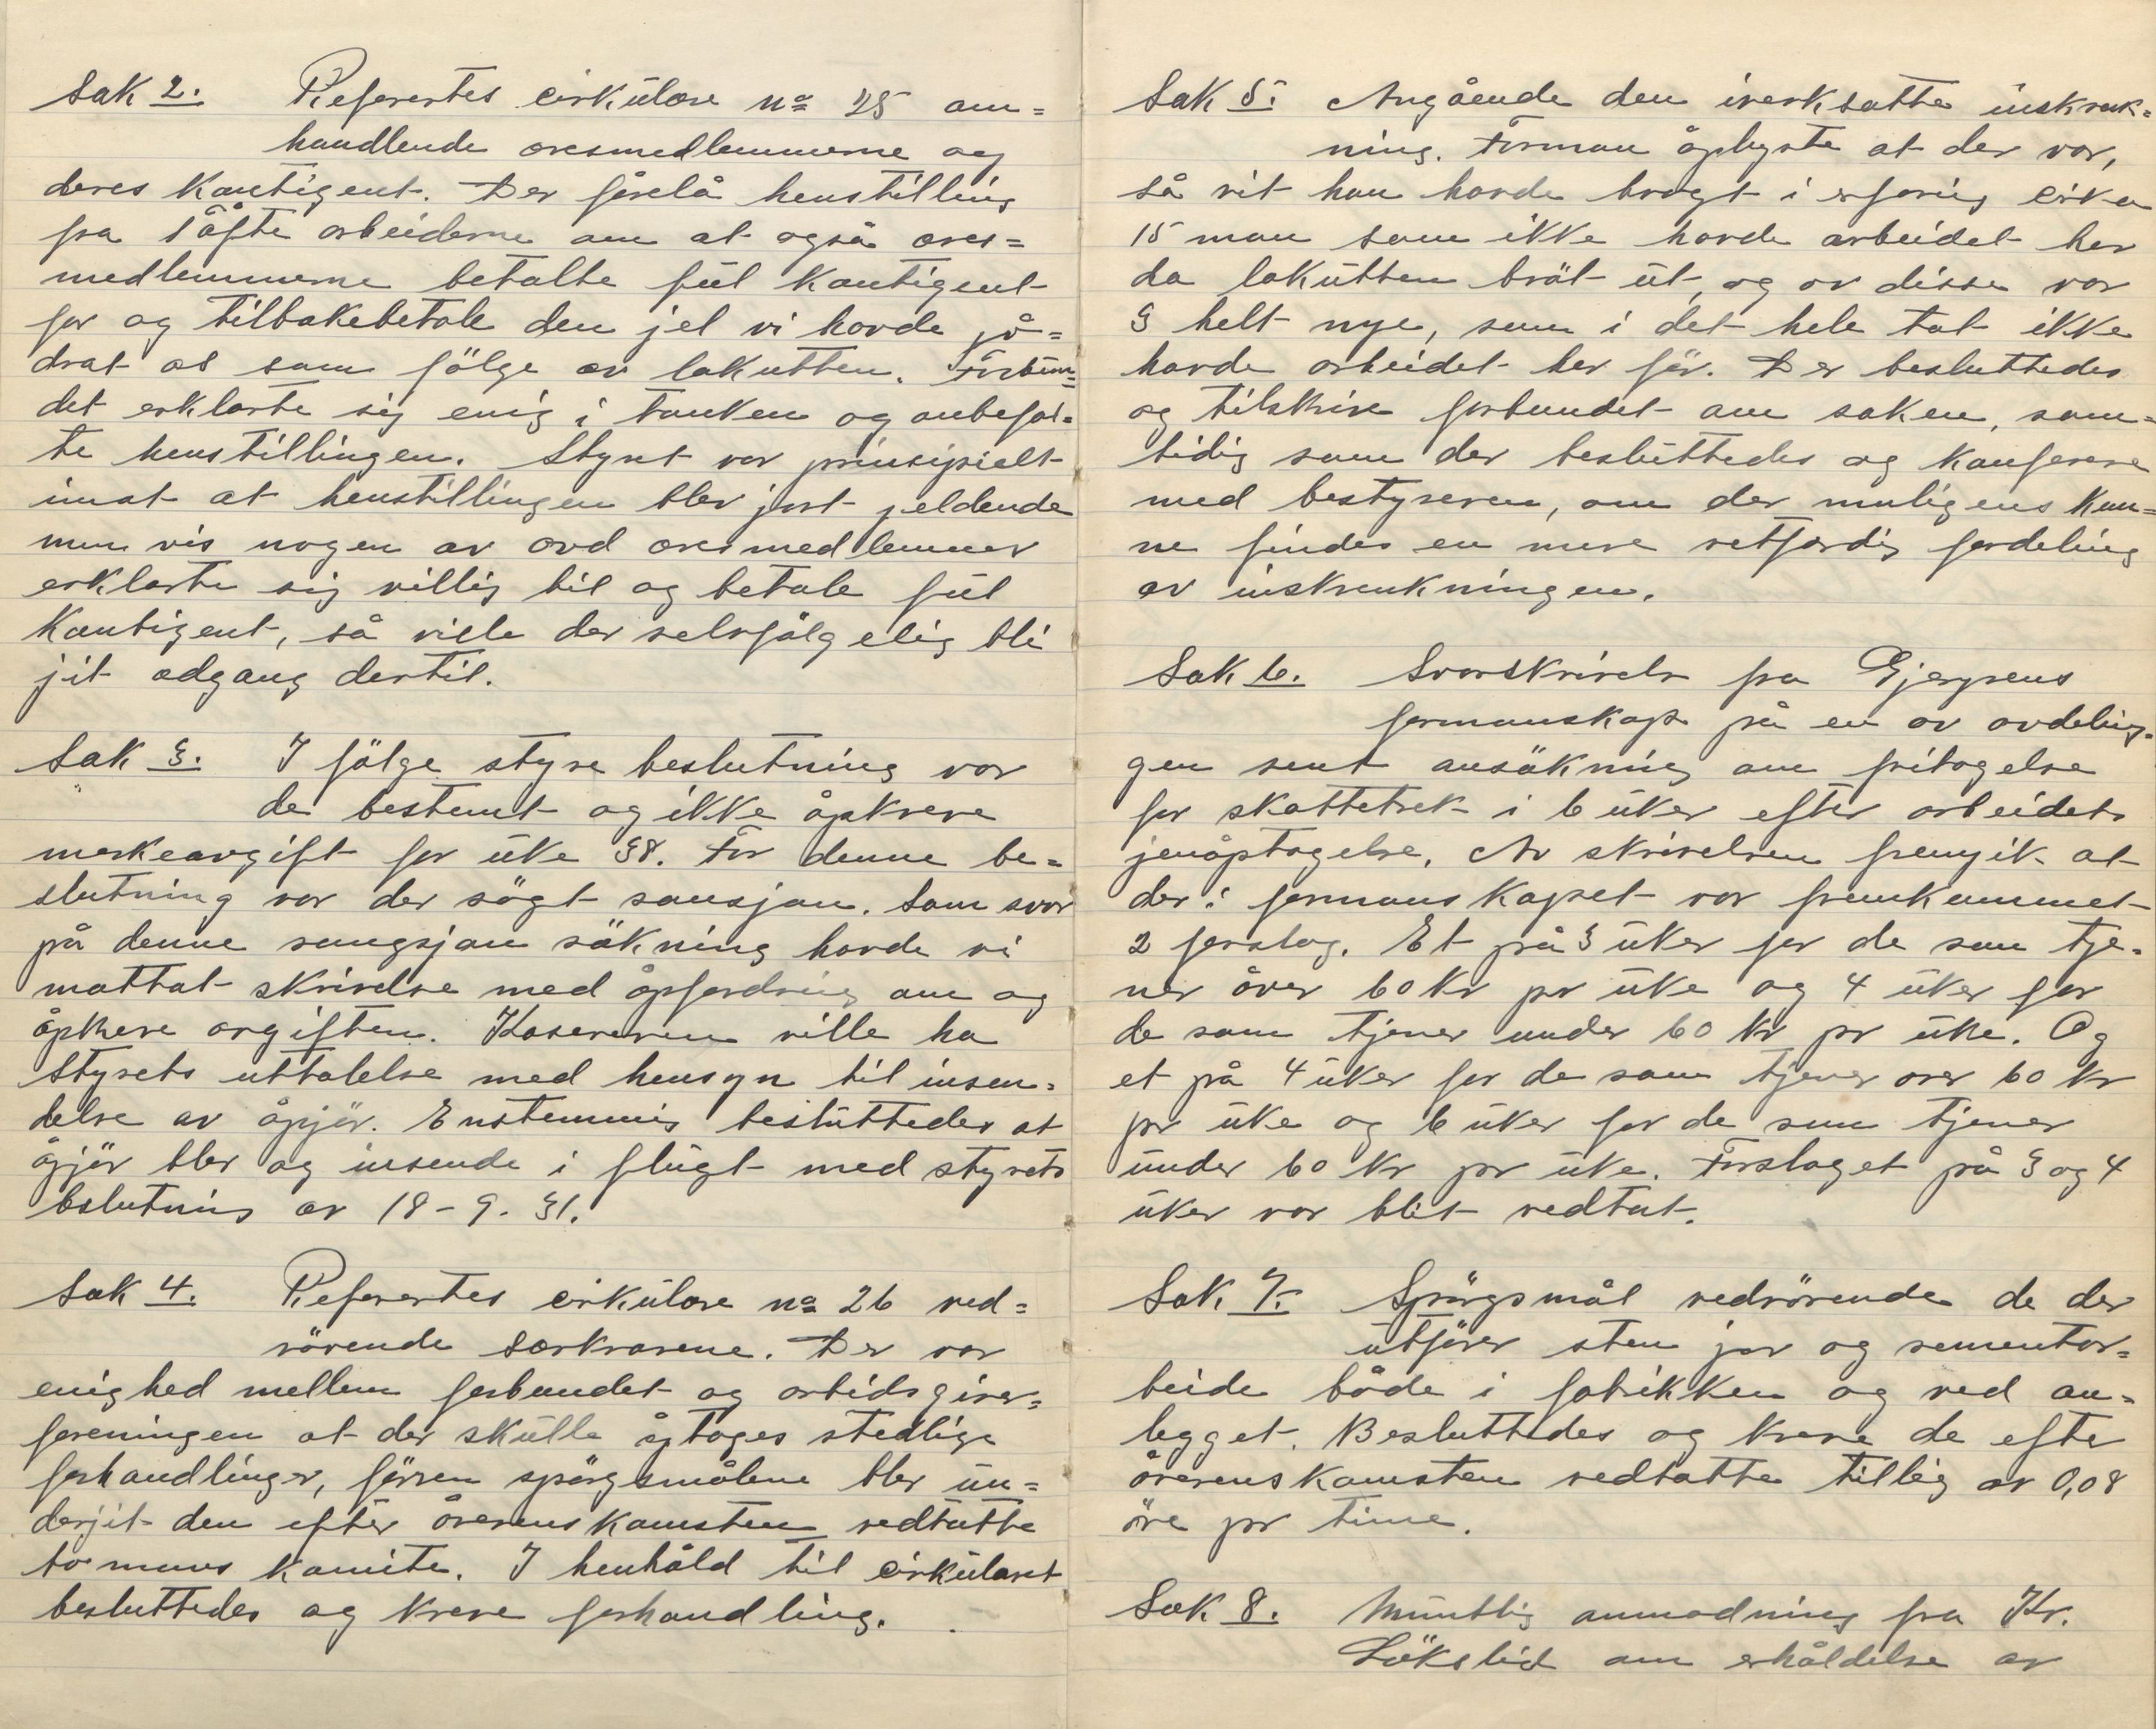 Sak 2. Referertes cirkülære no 25 om=
handlende æresmedlemmerne og
deres Kontigent. Der förelå henstilling
fra Tåfte arbeiderne om at også æres=
medlemmerne betalte fül Kontigent
for og tilbakebetale den jel vi havde på=
drat os som fölge av lokutten. Forbün=
det erklærte sig enig i tanken og anbefal=
te henstillingen. Styret var prinsipielt
imot at henstillingen blev jort jeldende
men vis nogen av avd æresmedlemmer
erklærte sig villig til og betale fül
Kontigent, så ville der selvfölgelig bli
jit adgang dertil.
Sak 3. I fölge styre beslutning var
de bestemt og ikke åpkreve
merkeavgift for üke 38. For denne be=
slutning var der sögt sansjon. Som svar
på denne sangsjon säkning havde vi
mottat skrivelse med åpfordring om og
åpkreve avgiften. Kasereren ville ha
Styrets uttalelse med hensyn til insen=
delse av åpjör. Enstemmig beslüttedes at
åpjör blev og insende i flügt med styrets
beslutning av 18-9-31.
Sak 4. Referertes cirkülære no 26 ved=
rörende særkravene. Der var
enighed mellem forbundet og arbidsgiver=
foreningen at der skülle åptages stedlige
forhandlinger, förren spörgsmålene blev ün=
derjit den efter överenskomsten vedtatte
to mans komite. I henhåld til cirküläret
besluttedes og kreve forhandling.
Sak 5. Angående den iverksatte inskrenk=
ning. Forman åplyste at der var,
så vit han havde bragt i erfaring cirka
15 man som ikke havde arbeidet her
da lokütten bröt üt, og av disse var
3 helt nye, som i det hele tat ikke
havde arbeidet her för. Der besluttedes
og tilskrive forbundet om saken, sam=
tidig som der beslüttedes og konferere
med bestyreren, om der muligens kun=
ne findes en mere retfærdig fordeling
av inskrenkningen.
Sak 6. Svarskrivelse fra Gjerpens
formanskap på en av avdelin=
gen sent ansäkning om fritagelse
for skattetrek i 6 üker efter arbeidets
jenåptagelse. Av skrivelsen fremgik at
der i formanskapet var fremkommet
2 forslag. Et på 3 üker for de som tje=
ner över 60 Kr pr üke og 4 üker for
de som tjener under 60 kr pr üke. Og
et på 4 üker for de som tjener over 60 kr
pr üke og 6 üker for de som tjener
ünder 60 kr pr üke. Forslaget på 3 og 4
üker var blit vedtat.
Sak 7. Spörgsmål vedrörende de der
ütförer sten jor og sementar=
beide både i fabrikken og ved an=
legget. Besluttedes og kreve de efter
överenskomsten vedtatte tilleg av 0,08
öre pr time.
Sak 8. Müntlig anmodning fra Kr.
Löksleid om erhåldelse av